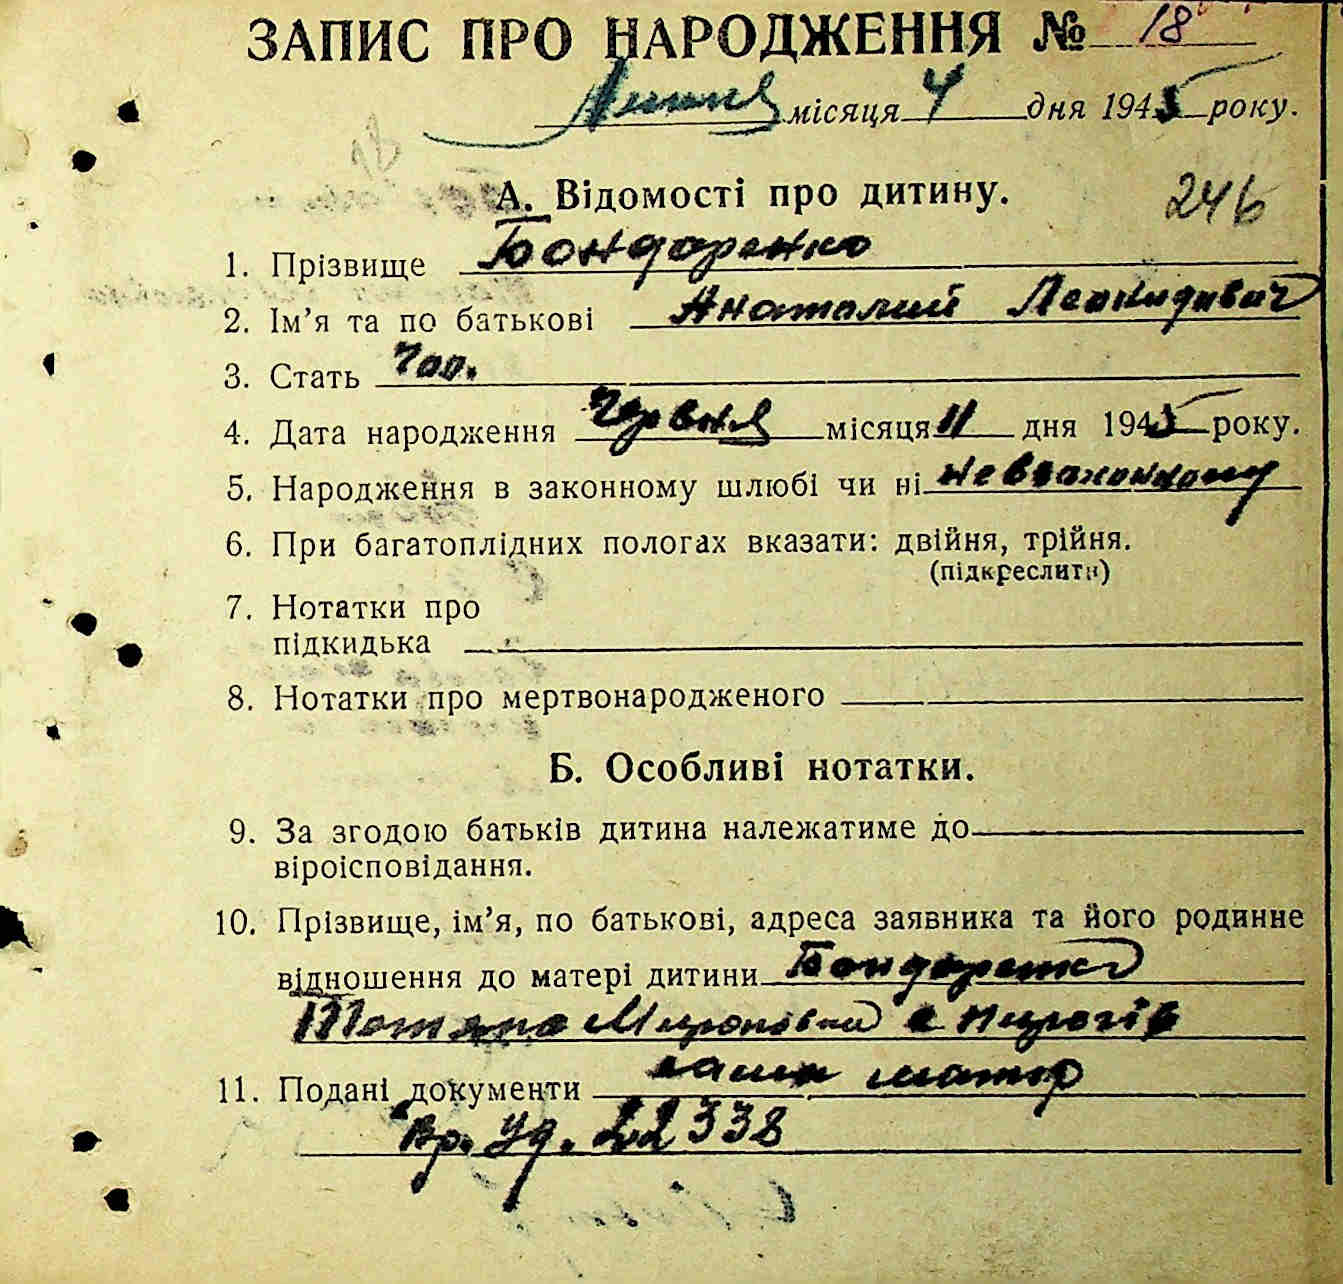 ЗАПИС ПРО НАРОДЖЕННЯ № 18
Липня місяця 4 дня 1945 року.
А. Відомості про дитину.
246
1. Прізвище Бондаренко
2. Ім'я та по батькові Анатолий Леонидович
3. Стать чол.
4. Дата народження Червня місяця 11 дня 1945 року.
5. Народження в законному шлюбі чи ні
6. При багатоплідних пологах вказати: двійня, трійня.
(підкреслити)
7. Нотатки про
підкидька
8. Нотатки про мертвонародженого
Б. Особливі нотатки.
9. За згодою батьків дитина належатиме до
віроісповідання.
10. Прізвище, ім'я, по батькові, адреса заявника та його родинне
відношення до матері дитини Бондаренко
Мироновна с Пирогів
11. Подані документи
Вр. Уд. 22338